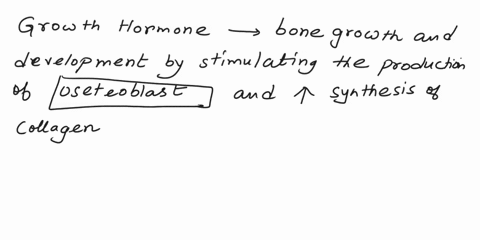 Growth Hormone → bone growth and
development by stimulating the production
of oseteoblast and ↑ synthesis of
collagen